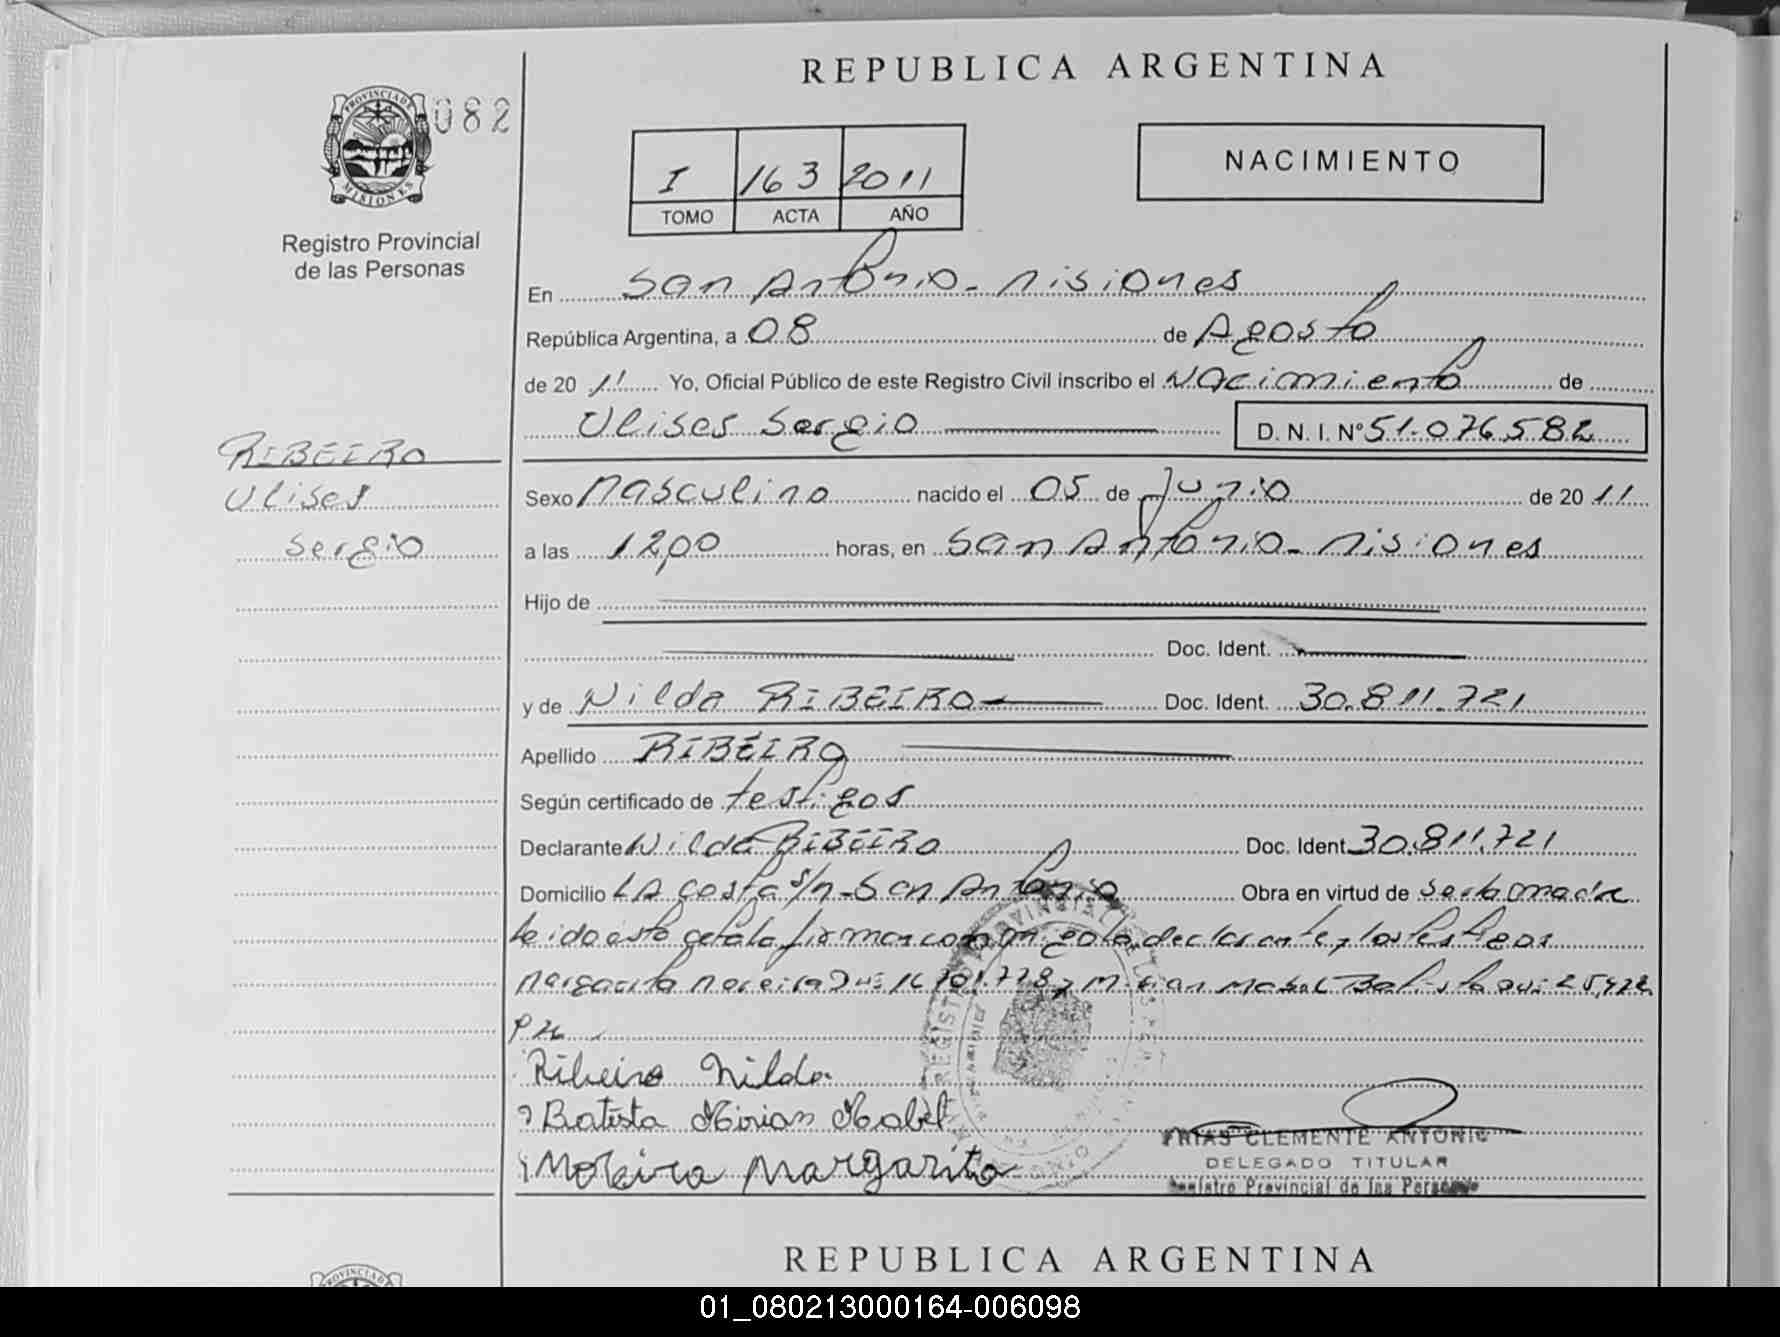 REPUBLICA ARGENTINA
PROVINCIA DE MISIONES
082
Registro Provincial
de las Personas
I 163 2011
TOMO ACTA AÑO
NACIMIENTO
En San Antonio - Misiones
República Argentina, a 08 de Agosto
de 20 11 Yo, Oficial Público de este Registro Civil inscribo el Nacimiento de
Ulises Sergio D. N. I. Nº 51.076.582
RIBEIRO
Ulises
Sergio
Sexo Masculino nacido el 05 de Junio de 20 11
a las 12,00 horas, en San Antonio - Misiones
Hijo de
Doc. Ident.
y de Nilda RIBEIRO Doc. Ident. 30.811.721
Apellido RIBEIRO
Según certificado de testigos
Declarante Nilda RIBEIRO Doc. Ident 30.811.721
Domicilio LA Costa s/n - San Antonio Obra en virtud de ser la madre
leida este acta la firman conmigo la declarante y los testigos
Margarita Moreira Dni 16 701.778 y Mirian Mabel Batista
Ribeiro Nilda
Batista Mirian Mabel
Moreira Margarita
FRIAS CLEMENTE ANTONIO
DELEGADO TITULAR
Registro Provincial de las Personas
REPUBLICA ARGENTINA
01_080213000164-006098